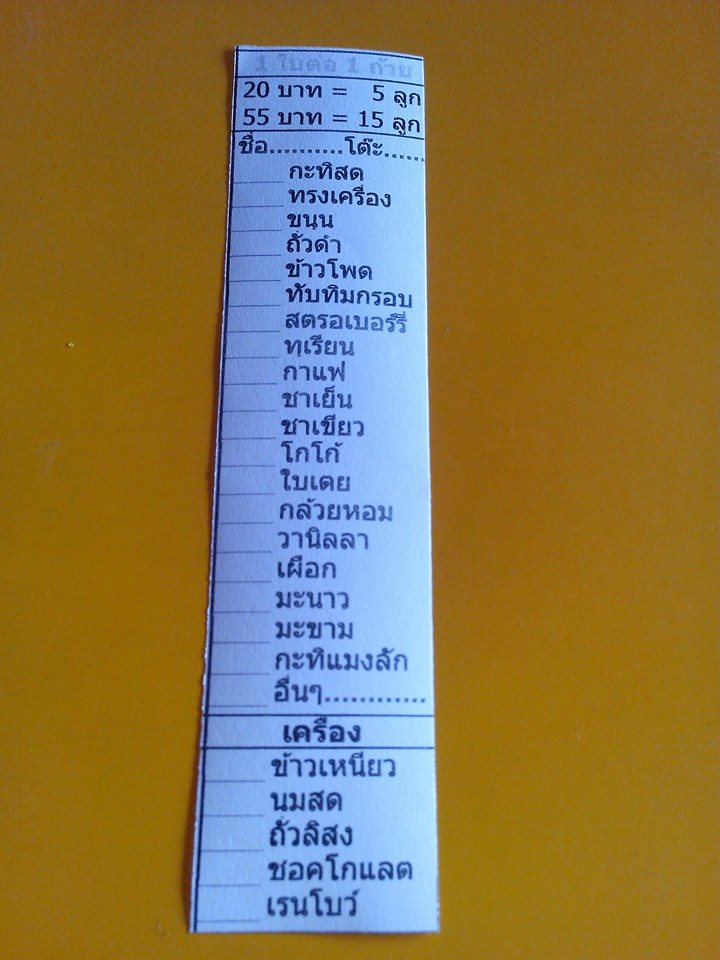 1 ใบต่อ 1 ถ้วย
20 บาท = 5 ลูก
55 บาท = 15 ลูก
ชื่อ..........โต๊ะ......
กะทิสด
ทรงเครื่อง
ขนุน
ถั่วดำ
ข้าวโพด
ทับทิมกรอบ
สตรอเบอร์รี่
ทุเรียน
กาแฟ
ชาเย็น
ชาเขียว
โกโก้
ใบเตย
กล้วยหอม
วานิลลา
เผือก
มะนาว
มะขาม
กะทิแมงลัก
อื่นๆ............
เครื่อง
ข้าวเหนียว
นมสด
ถั่วลิสง
ชอคโกแลต
เรนโบว์